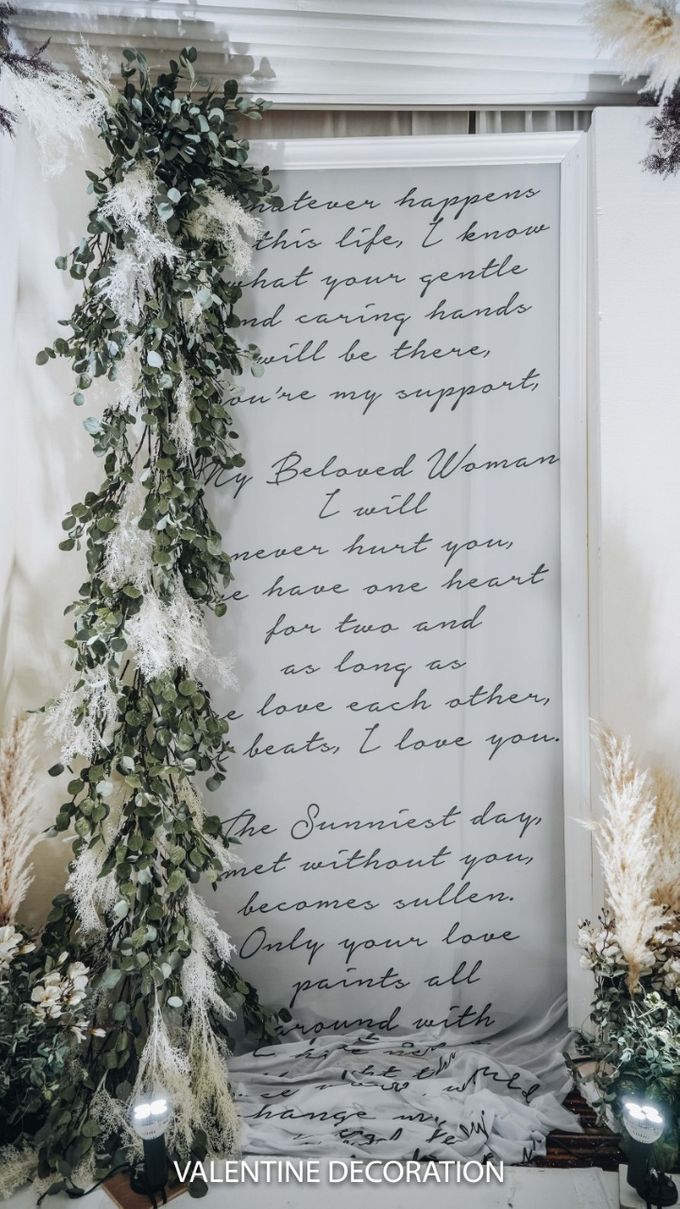 Whatever happens
this life, I know
that your gentle
and caring hands
will be there,
you're my support,
My Beloved Woman
I will
never hurt you,
we have one heart
for two and
as long as
we love each other,
it beats, I love you.
The Sunniest day,
met without you,
becomes sullen.
Only your love
paints all
around with
change
VALENTINE DECORATION